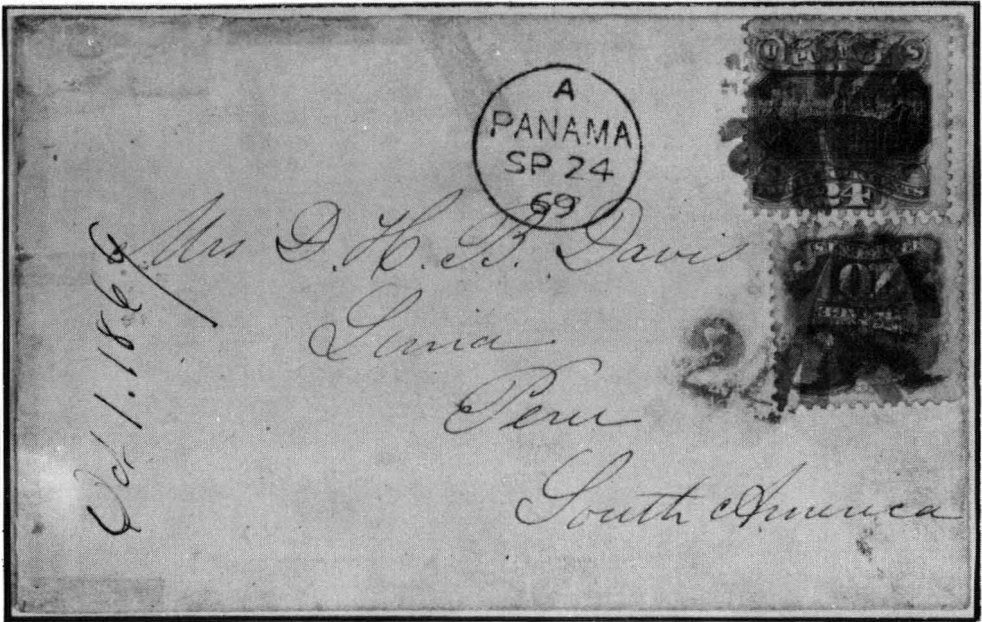 A
PANAMA
SP 24
69
Mrs D. H. B. Davis
Lima
Peru
South America
24
10
2